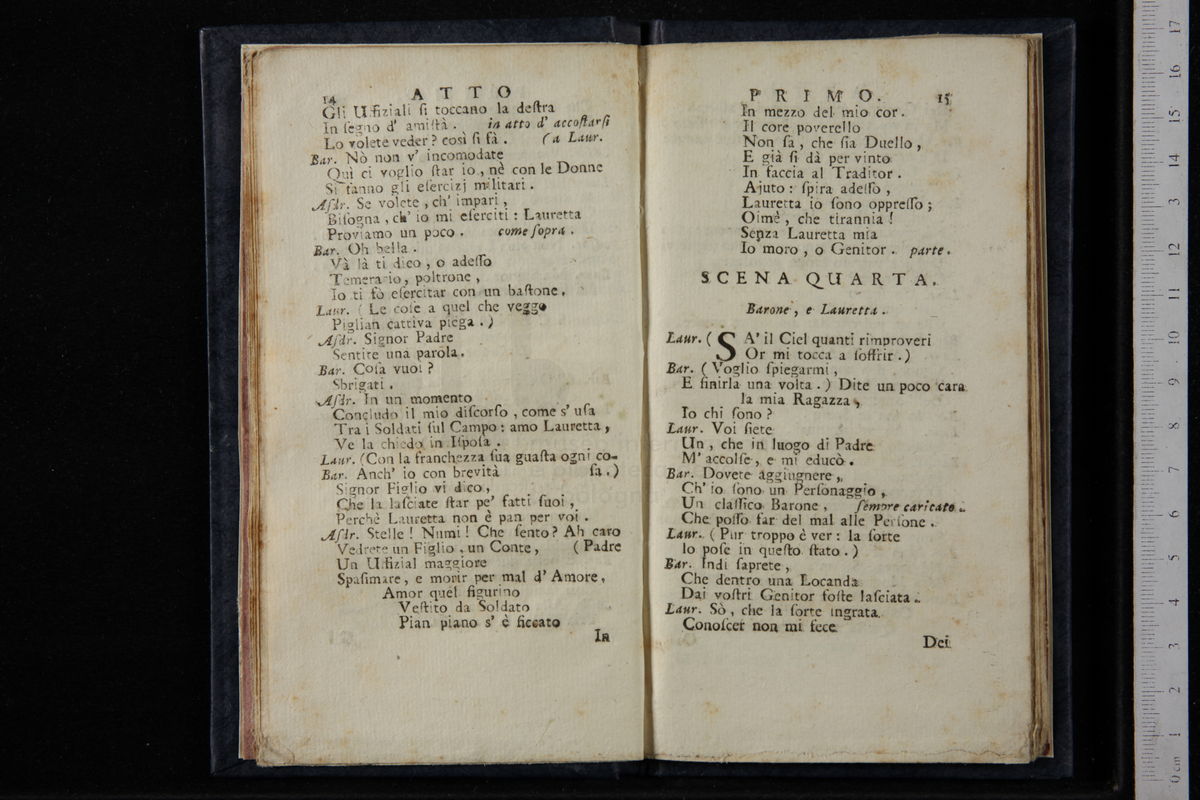 14 ATTO
Gli Uffiziali si toccano la destra
In segno d' amistà . in atto d' accostarsi
Lo volete veder ? così si fà . ( a Laur.
Bar. Nò non v' incomodate
Quì ci voglio star io , nè con le Donne
Si fanno gli esercizj militari .
Asdr. Se volete , ch' impari ,
Bisogna , ch' io mi eserciti : Lauretta
Proviamo un poco . come sopra .
Bar. Oh bella .
Và là ti dico , o adesso
Temerario , poltrone ,
Io ti fò esercitar con un bastone .
Laur. ( Le cose a quel che veggo
Piglian cattiva piega . )
Asdr. Signor Padre
Sentite una parola .
Bar. Cosa vuoi ?
Sbrigati .
Asdr. In un momento
Concludo il mio discorso , come s' usa
Tra i Soldati sul Campo : amo Lauretta ,
Ve la chiedo in Isposa .
Laur. (Con la franchezza sua guasta ogni co-
Bar. Anch' io con brevità sa . )
Signor Figlio vi dico ,
Che la lasciate star pe' fatti suoi ,
Perchè Lauretta non è pan per voi .
Asdr. Stelle ! Numi ! Che sento ? Ah caro
Vedrete un Figlio , un Conte , ( Padre
Un Uffizial maggiore
Spasimare , e morir per mal d' Amore ,
Amor quel figurino
Vestito da Soldato
Pian piano s' è ficcato
In
PRIMO. 15
In mezzo del mio cor .
Il core poverello
Non sa , che sia Duello ,
E già si dà per vinto
In faccia al Traditor .
Ajuto : spira adesso ,
Lauretta io sono oppresso ;
Oimè , che tirannia !
Senza Lauretta mia
Io moro , o Genitor . parte .
SCENA QUARTA.
Barone , e Lauretta .
Laur. ( SA' il Ciel quanti rimproveri
Or mi tocca a soffrir . )
Bar. ( Voglio spiegarmi ,
E finirla una volta . ) Dite un poco cara
la mia Ragazza ,
Io chi sono ?
Laur. Voi siete
Un , che in luogo di Padre
M' accolse , e mi educò .
Bar. Dovete aggiugnere ,
Ch' io sono un Personaggio ,
Un classico Barone , sempre caricato .
Che posso far del mal alle Persone .
Laur. ( Pur troppo è ver : la sorte
Io pose in questo stato . )
Bar. Indi saprete ,
Che dentro una Locanda
Dai vostri Genitor foste lasciata .
Laur. Sò , che la sorte ingrata
Conoscer non mi fece
Dei
17
16
15
14
13
12
11
10
9
8
7
6
5
4
3
2
1
0 cm